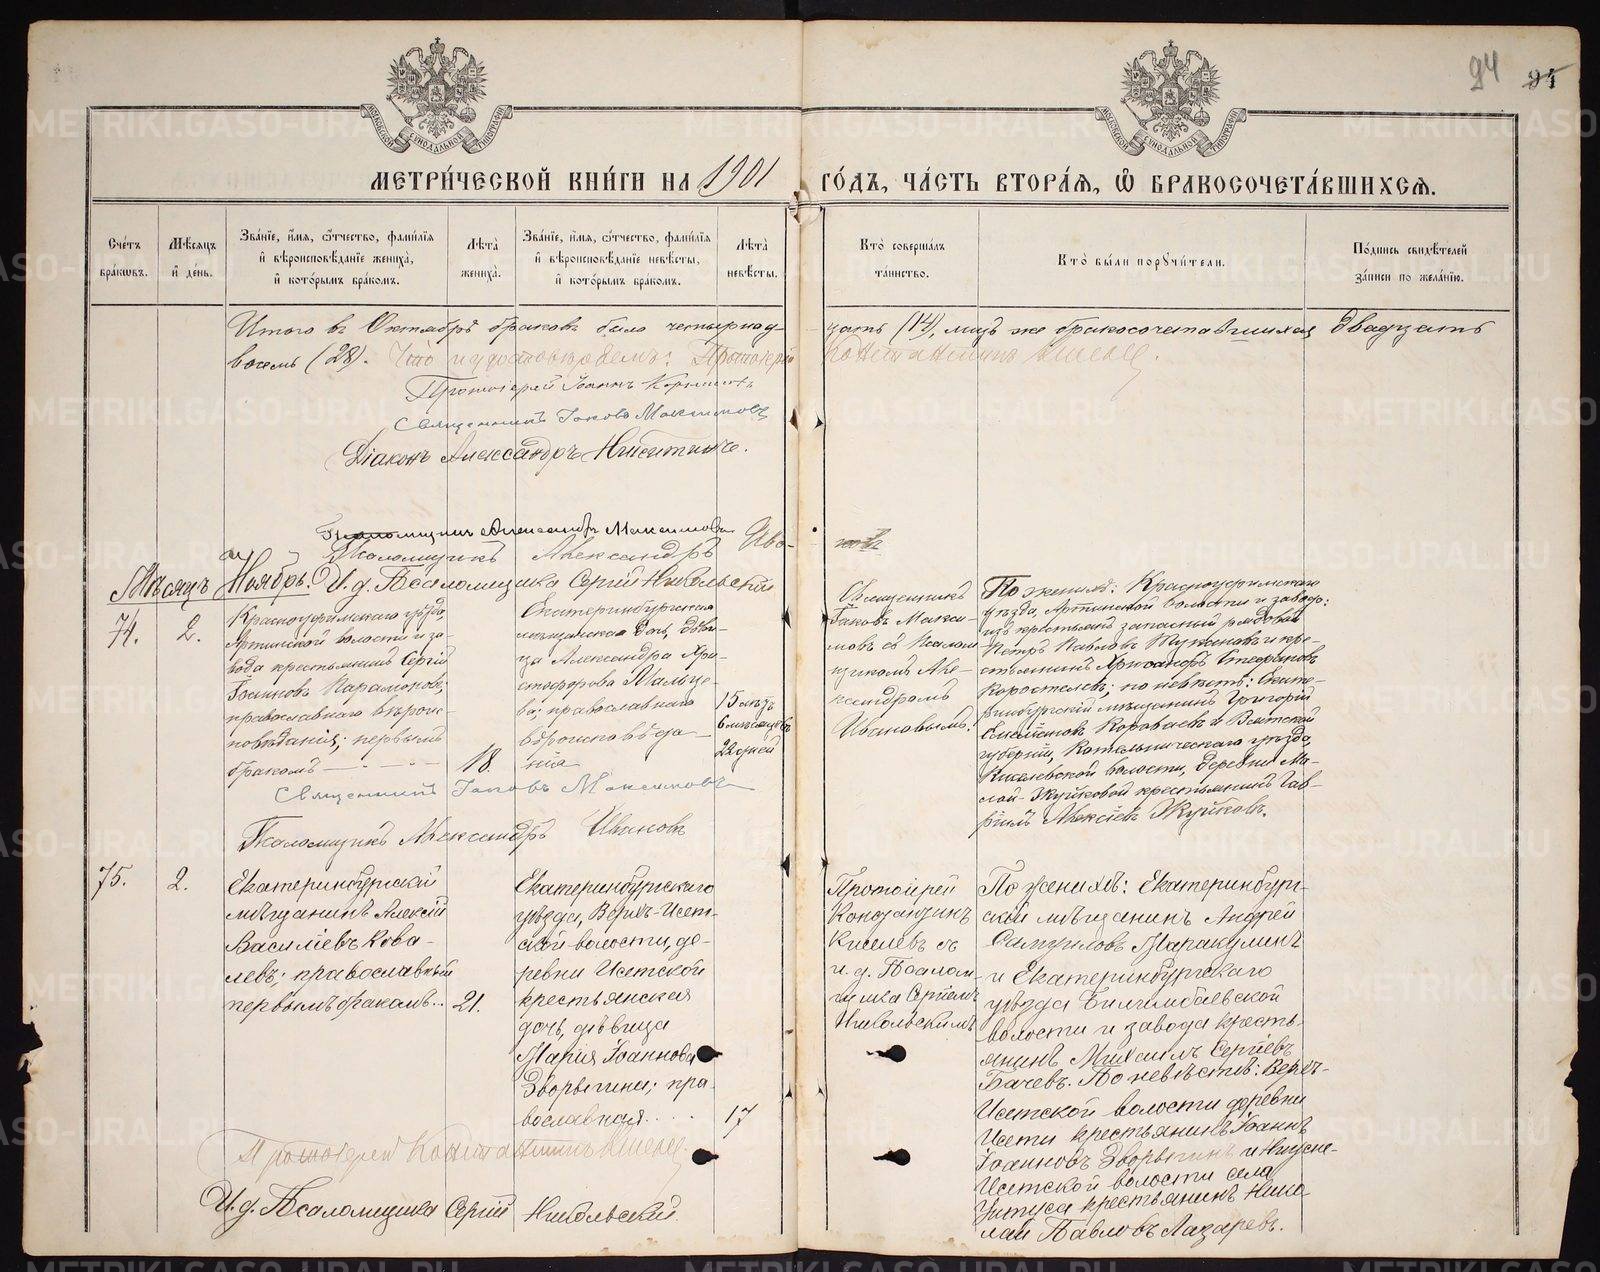 94 94
МЕТРИ́ЧЕСКОЙ КНИ́ГИ НА 1901 ГО́ДЪ, ЧА́СТЬ ВТОРА́Я, Ѡ БРАКОСОЧЕТА́ВШИХСЯ.
Сче́тъ бра́кѡвъ.
Мѣ́сяцъ и́ де́нь.
Зва́нїе, и́мя, ѻ́тчество, фами́лїя и́ вѣроисповѣ́данїе жениха̀, и́ кото́рымъ бра́комъ.
Лѣта̀ жениха̀.
Зва́нїе, и́мя, ѻ́тчество, фами́лїя и́ вѣроисповѣ́данїе невѣ́сты, и́ кото́рымъ бра́комъ.
Лѣта̀ невѣ́сты.
Кто̀ соверша́лъ та́инство.
Кто̀ бы́ли порꙋчи́тели.
По́дпись свидѣ́телей за́писи по жела́нїю.
Итого въ Октябрѣ браковъ было четырнад-
цать (14), лицъ же бракосочетавшихся двадцать
восемь (28). Что и удостовѣряемъ: Протоіерей
Константинъ Киселевъ.
Протоіерей Іоаннъ
Священникъ Іаковъ Максимовъ
Діаконъ Александръ Никитинъ.
Псаломщикъ Александръ Максимовъ
Псаломщикъ Александръ Ива-
новъ
Мѣсяцъ Ноябрь. И. д. Псаломщика Сергій Никольскій
74.
2.
Красноуфимскаго уѣзда,
Артинской волости и за-
вода крестьянинъ Сергій
Іоанновъ Парамоновъ;
православнаго вѣроис-
повѣданія; первымъ
бракомъ
18.
Екатеринбургская
мѣщанская дочь, дѣви-
ца Александра Хри-
стофорова Мальце-
ва; православнаго
вѣроисповѣда-
нія
15 лѣтъ
6 мѣсяцевъ
22 дней
Священникъ
Іаковъ Макси-
мовъ съ Псалом-
щикомъ Але-
ксандромъ
Ивановымъ.
По женихѣ: Красноуфимскаго
уѣзда, Артинской волости и завода:
изъ крестьянъ запасный рядовой
Петръ Павловъ и кре-
стьянинъ Хрисанфъ Стефановъ
Коростелевъ; по невѣстѣ: Екате-
ринбургскій мѣщанинъ Григорій
Короваевъ и Вятской
губерніи, Котельническаго уѣзда,
волости, деревни Ма-
лой-Жуйковой крестьянинъ Гав-
ріилъ Алексіевъ Жуйковъ.
Священникъ Іаковъ Максимовъ
Псаломщикъ Александръ Ивановъ
75.
2.
Екатеринбургскій
мѣщанинъ Алексій
Василіевъ Кова-
левъ; православный
первымъ бракомъ...
21.
Екатеринбургскаго
уѣзда, Верхъ-Исет-
ской волости, де-
ревни Исетской
крестьянская
дочь, дѣвица
Марія Іоаннова
Дворыгина; пра-
вославная....
17
Протоіерей
Константинъ
Киселевъ съ
и. д. Псалом-
щика Сергіемъ
Никольскимъ
По женихѣ: Екатеринбург-
скій мѣщанинъ Андрей
Самуиловъ Таракулинъ
и Екатеринбургскаго
уѣзда Билимбаевской
волости и завода кресть-
янинъ Михаилъ Сергіевъ
Бачевъ. По невѣстѣ: Верхъ-
Исетской волости деревни
Исети крестьянинъ Іоаннъ
Іоанновъ Дворыгинъ и Нижне-
Исетской волости села
Уктуса крестьянинъ Нико-
лай Павловъ Лазаревъ.
Протоіерей Константинъ Киселевъ.
И. д. Псаломщика Сергій Никольскій.
METRIKI.GASO-URAL.RU